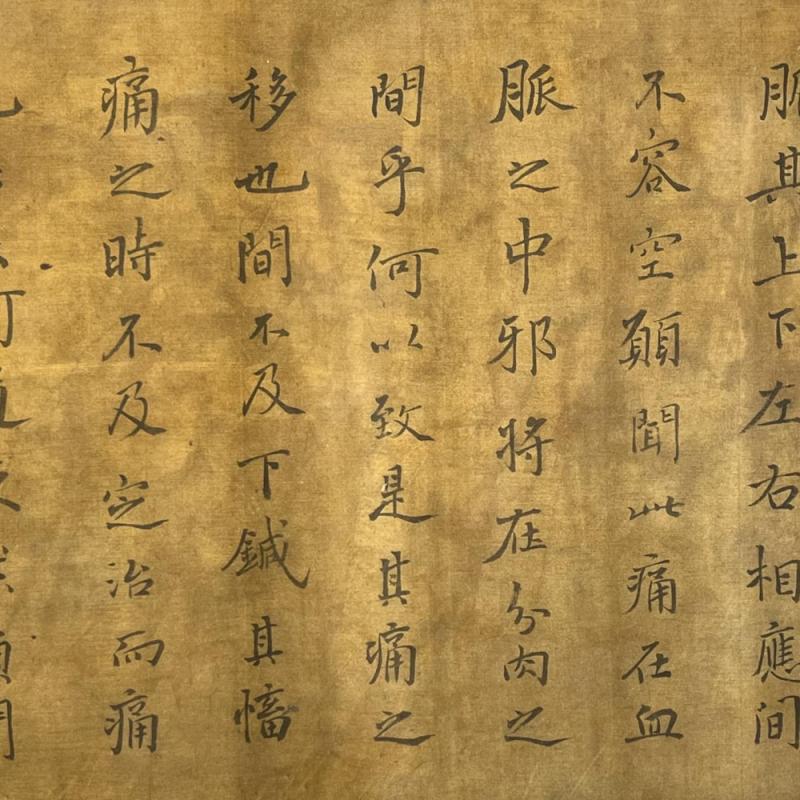 脈其上下左右相應間
不容空願聞此痛在血
脈之中邪將在分肉之
間乎何以致是其痛之
移也間不及下鍼其慉
痛之時不及定治而痛